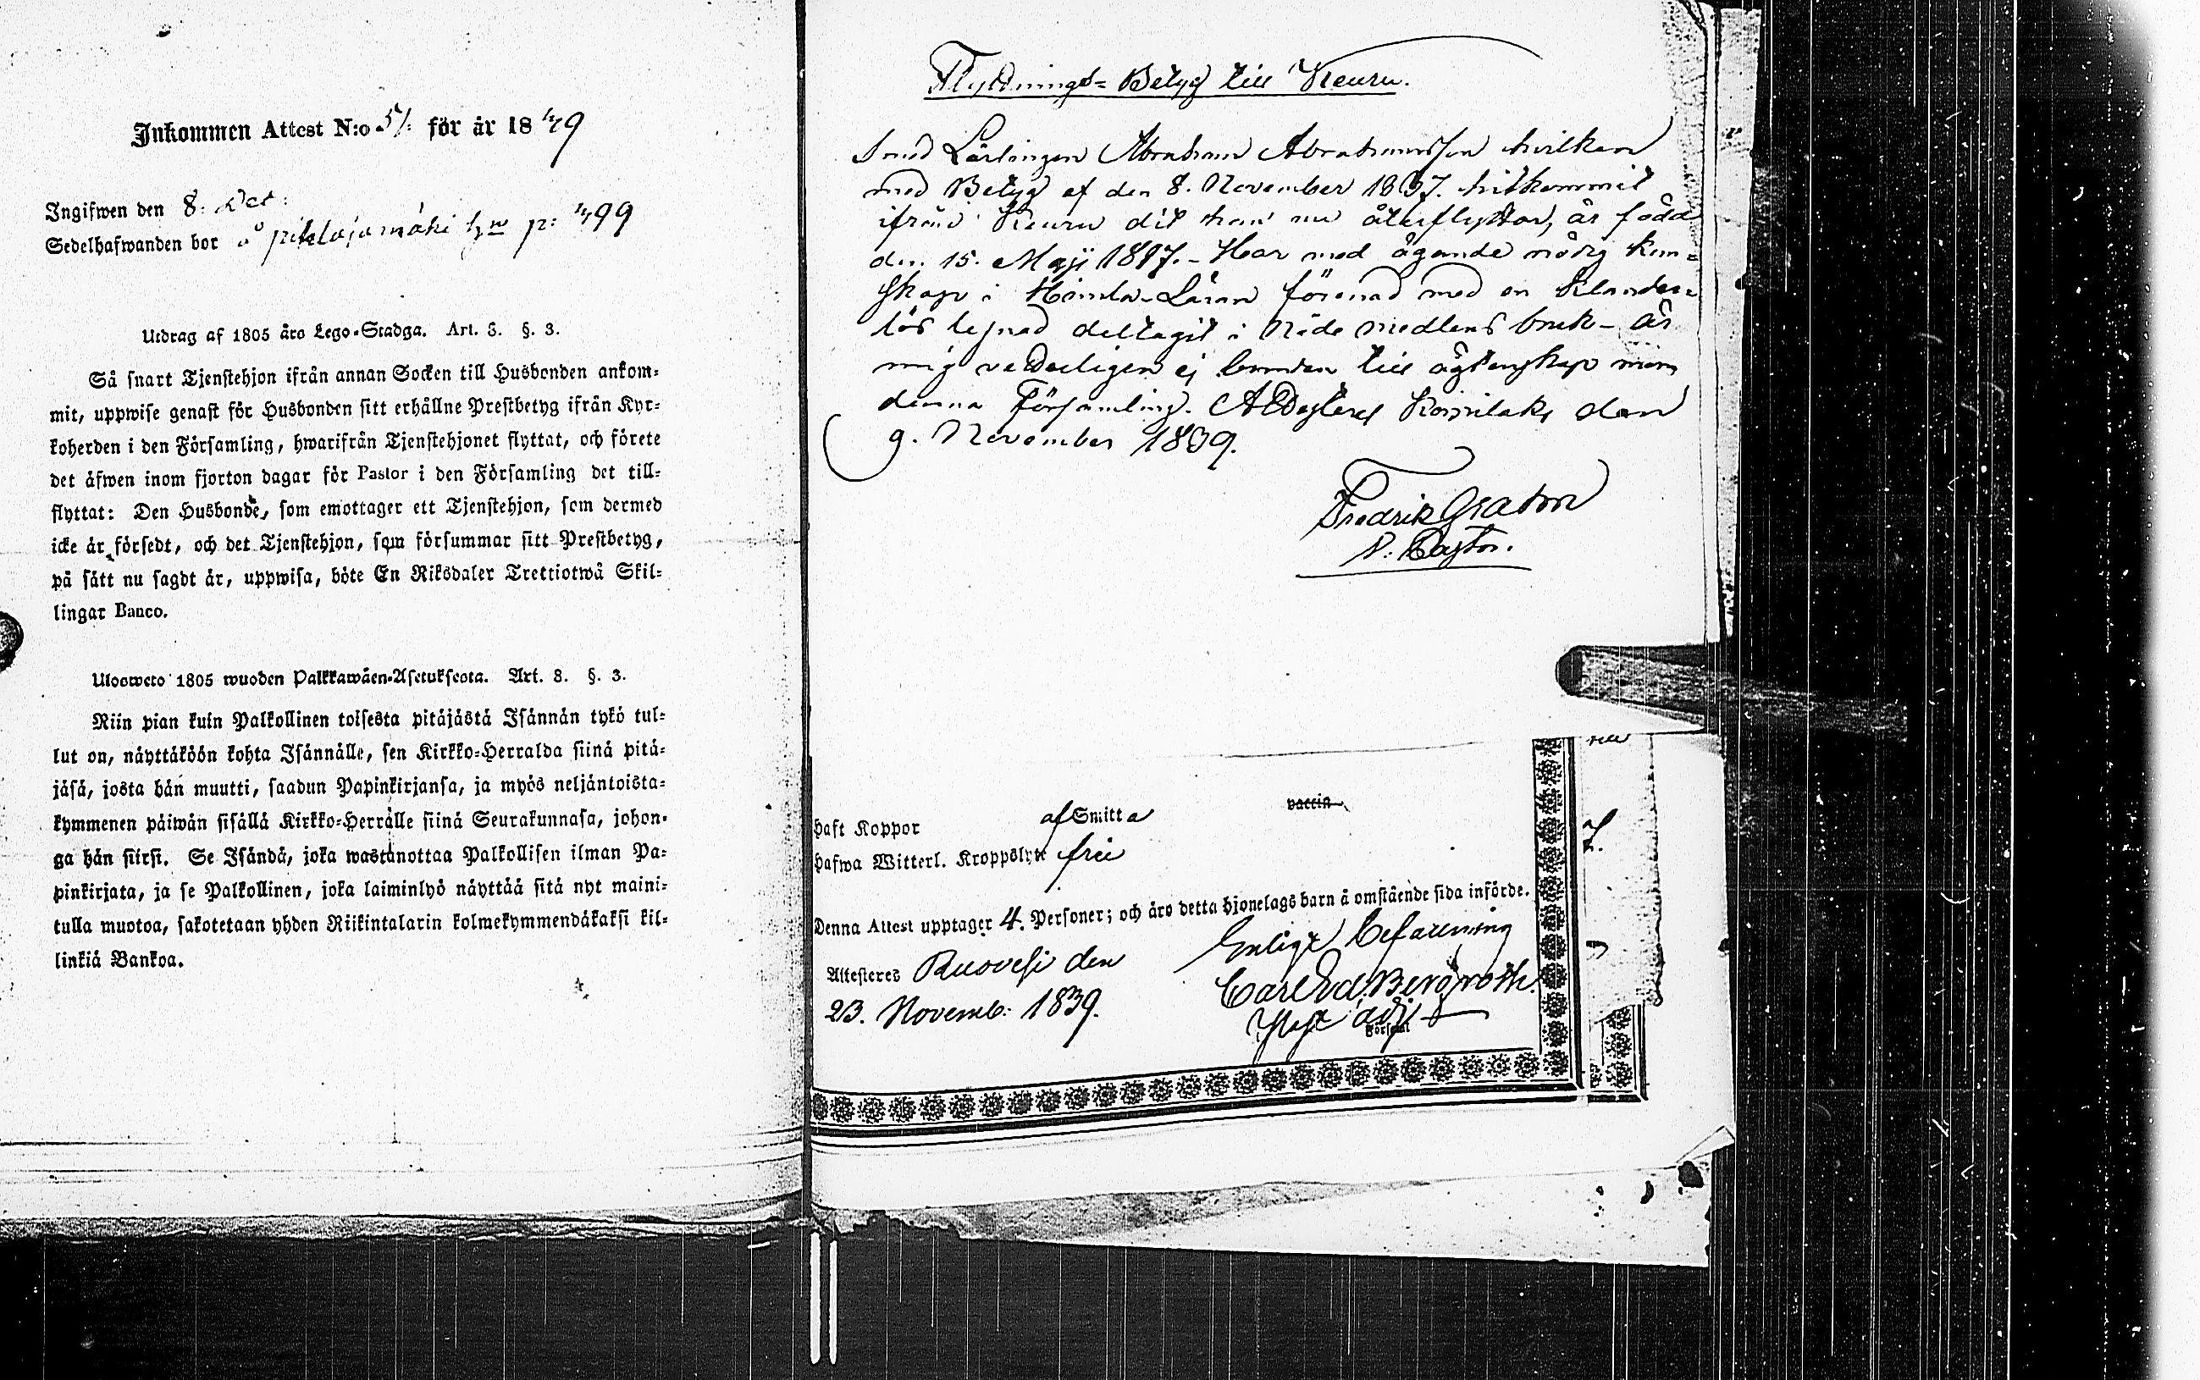 Inkommen Attest N:o 51. för år 1839
Ingifwen den 8. Dec:
Sedelhafwanden bor å pihlajamäki p: 499
Utdrag af 1805 års Lego-Stadga. Art. 8. §. 3.
Så snart Tjenstehjon ifrån annan Socken till Husbonden ankom-
mit, uppwise genast för Husbonden sitt erhållne Prestbetyg ifrån Kyr-
koherden i den Församling, hwarifrån Tjenstehjonet flyttat, och förete
det äfwen inom fjorton dagar för Pastor i den Församling det till-
flyttat: Den Husbonde, som emottager ett Tjenstehjon, som dermed
icke är försedt, och det Tjenstehjon, som försummar sitt Prestbetyg,
på sätt nu sagdt är, uppwisa, böte En Riksdaler Trettiotwå Skil-
lingar Banco.
Ulosweto 1805 wuoden Palkkawäen-Asetuksesta. Art. 8. §. 3.
Niin pian kuin Palkollinen toisesta pitäjästä Isännän tykö tul-
lut on, näyttäköön kohta Isännälle, sen Kirkko-Herralda siinä pitä-
jäsä, josta hän muutti, saadun Papinkirjansa, ja myös neljäntoista-
kymmenen päiwän sisällä Kirkko-Herralle siinä Seurakunnasa, johon-
ga hän siirsi. Se Isändä, joka wastanottaa Palkollisen ilman Pa-
pinkirjata, ja se Palkollinen, joka laiminlyö näyttää sitä nyt maini-
tulla muotoa, sakotetaan yhden Riikintalarin kolmekymmendäkaksi kil-
linkiä Bankoa.
Flyttnings-Betyg till Keuru.
Smed Lärlingen Abraham Abrahamsson hvilken
med Betyg af den 8. November 1837. hitkommit
ifrån Keuru dit han nu återflyttar, är född
den 15. Maji 1817. - Har med ägande nödig kun-
skap i Himla-Läran förenad med en klander-
lös lefnad deltagit i Nåde medlens bruk - är
mig veterligen ej bunden till ägtenskap inom
denna Församling. Attesteras Koivilaks den
9. November 1839.
Fredrik
V: Pastor.
haft Koppor af Smitta vaccin
hafwa Witterl. Kroppslyte frie
Denna Attest upptager 4. Personer; och äro detta hjonelags barn å omstående sida införde.
Attesteres Ruovesi den
23. Novemb: 1839.
Enligt befarening
Carl Ed. Bergroth.
Past adj
Församl